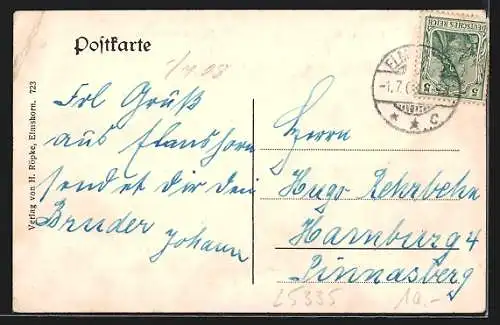 Postkarte
1/7 08
Frl Gruß
aus Elmshorn
sendet dir dein
Bruder
Johann
Herrn
Hugo Rehrbehn
Hamburg 4
Pinnasberg
Verlag von H. Röpke, Elmshorn. 723
DEUTSCHES REICH
5 5
-1.7.
* * C
25335
10.-